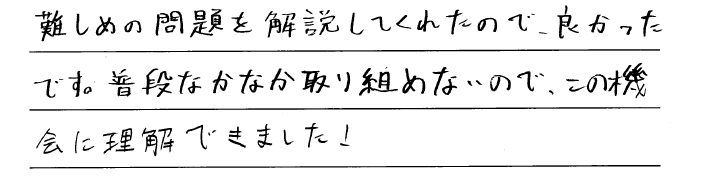 難しめの問題を解説してくれたので、良かった
です。普段なかなか取り組めないので、この機
会に理解できました！